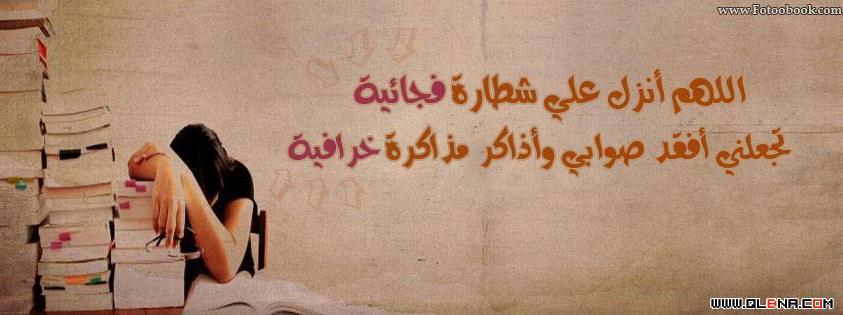 www.Fotoobook.com
اللهم أنزل علي شطارة فجائية
تجعلني أفقد صوابي وأذاكر مذاكرة خرافية
www.QLBNA.COM